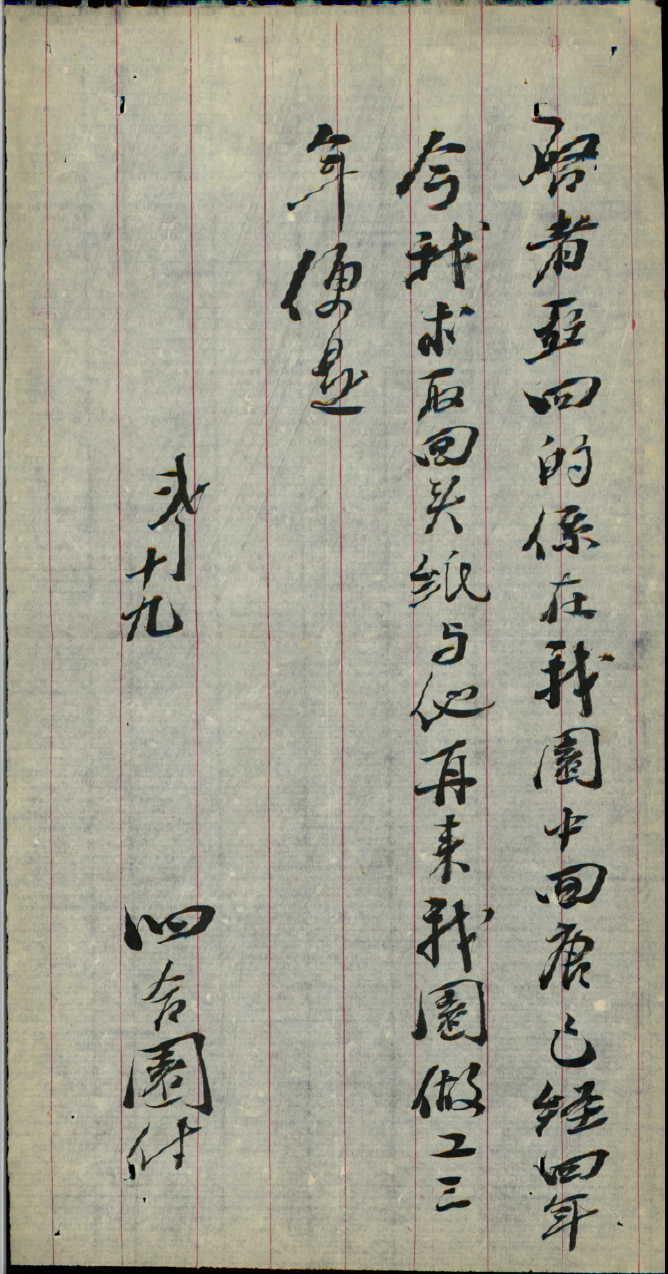 啓者亞四的係在我園中回唐已經四年
今我求取回头紙与他再来我園做工三
年便是
弍月十九
四合園付